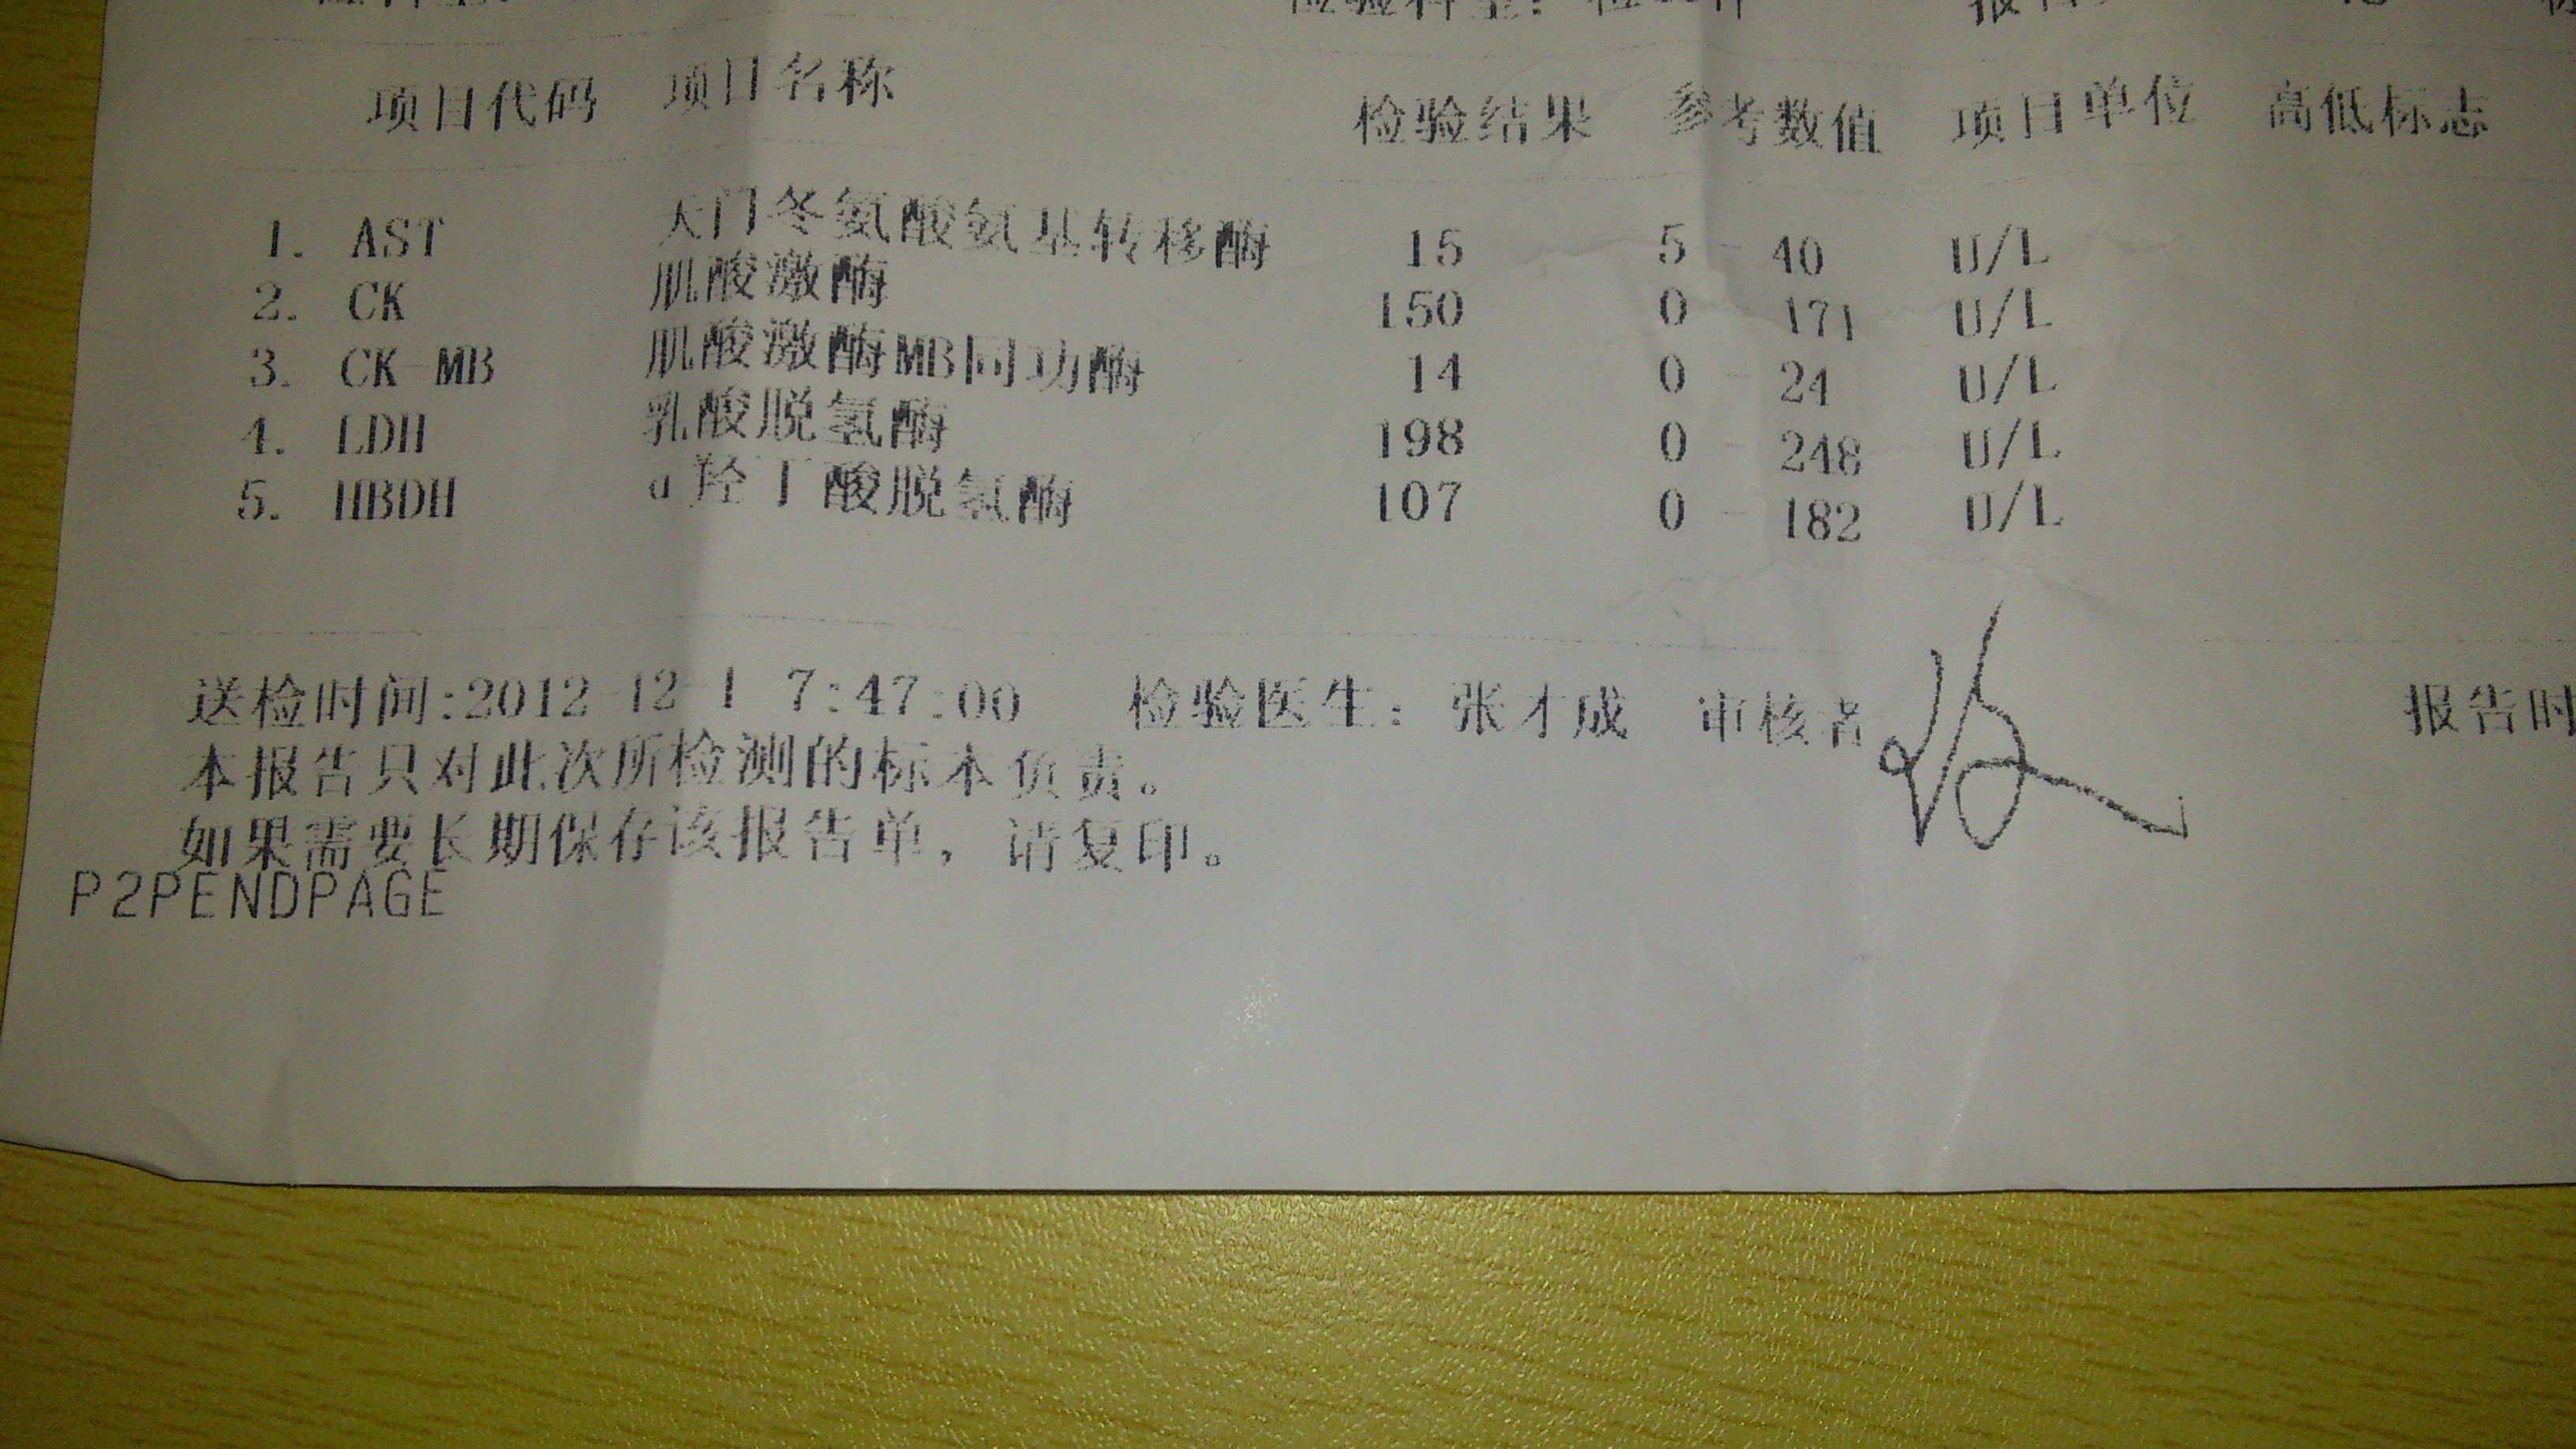 项目代码 项目名称 检验结果 参考数值 项目单位 高低标志
1. AST 天门冬氨酸氨基转移酶 15 5 - 40 U/L
2. CK 肌酸激酶 150 0 - 171 U/L
3. CK-MB 肌酸激酶MB同功酶 14 0 - 24 U/L
4. LDH 乳酸脱氢酶 198 0 - 248 U/L
5. HBDH α羟丁酸脱氢酶 107 0 - 182 U/L
送检时间:2012-12-1 7:47:00 检验医生: 张才成 审核者 报告时
本报告只对此次所检测的标本负责。
如果需要长期保存该报告单,请复印。
P2PENDPAGE